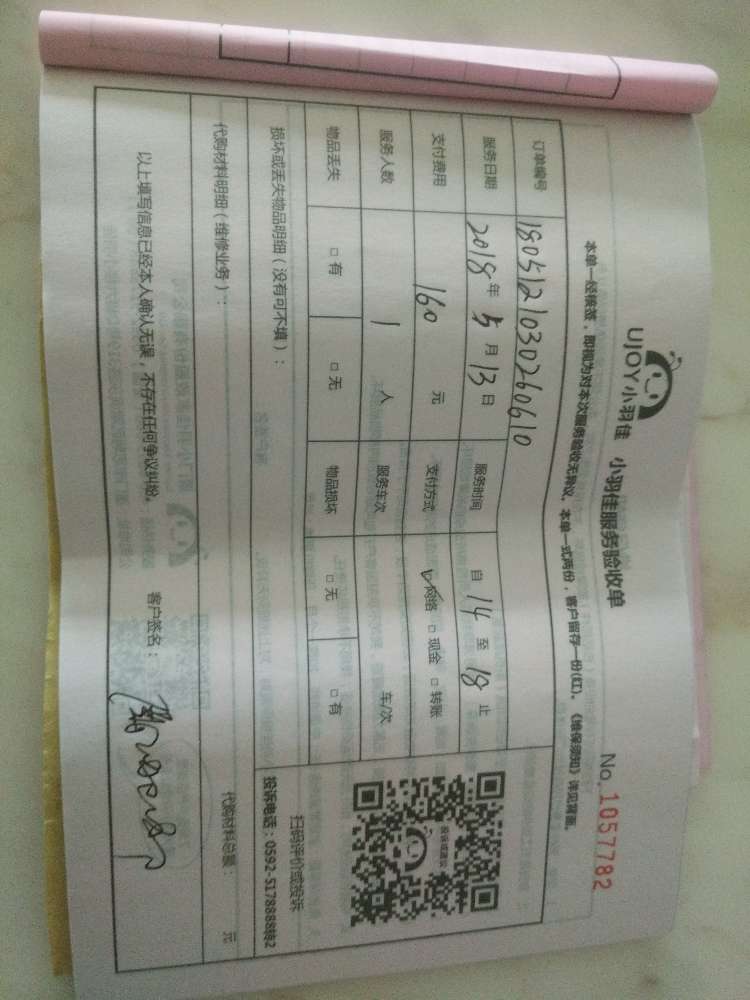 UJOY小羽佳 小羽佳服务验收单 No. 1057782
本单一经核签,即视为对本次服务验收无异议。本单一式两份,客户留存一份(红)。《维保须知》详见背面。
订单编号 180512103026060610
服务日期 2018年5月13日 服务时间 自14至18止
支付费用 160元 支付方式 网络 □现金 □转账
服务人数 1人 服务车次 车/次
物品丢失 □有 □无 物品损坏 □无 □有
损坏或丢失物品明细(没有可不填):
扫码评价或投诉
投诉电话:0592-5178888转2
代购材料明细(维修业务): 代购材料总额: 元
以上填写信息已经本人确认无误,不存在任何争议纠纷。 客户签名: